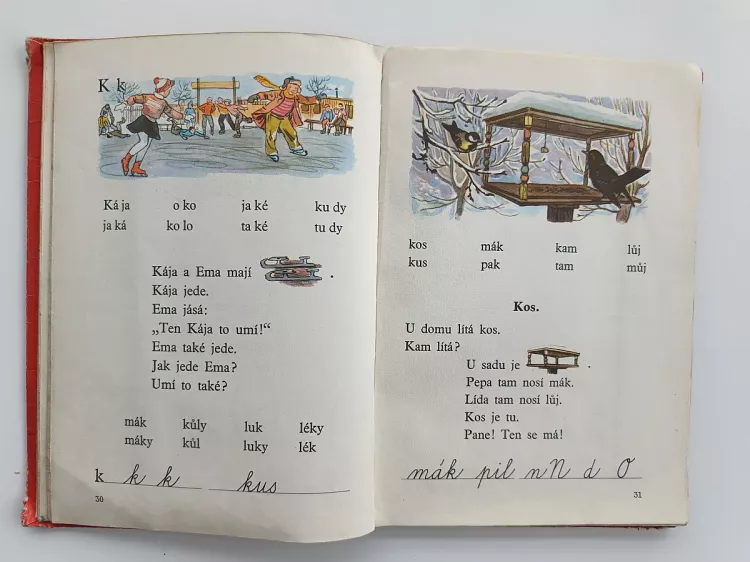 K k
Ká ja o ko ja ké ku dy
ja ká ko lo ta ké tu dy
Kája a Ema mají .
Kája jede.
Ema jásá:
„Ten Kája to umí!“
Ema také jede.
Jak jede Ema?
Umí to také?
mák kůly luk léky
máky kůl luky lék
k k k kus
30
kos mák kam lůj
kus pak tam můj
Kos.
U domu lítá kos.
Kam lítá?
U sadu je .
Pepa tam nosí mák.
Lída tam nosí lůj.
Kos je tu.
Pane! Ten se má!
mák pil n N d O
31